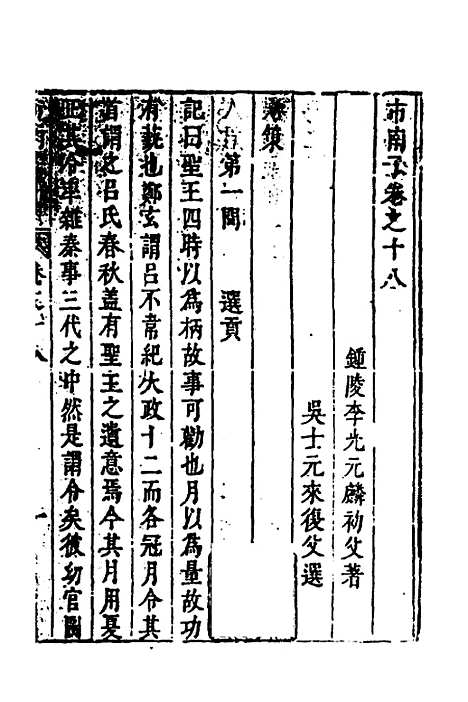 市南子卷之十八
鍾陵李光元麟初父著
吳士元來復父選
第一問　選貢
記曰聖王四時以爲柄故事可勸也月以爲量故功
有藝也鄭玄謂呂不韋紀大政十二而各冠月令其
首謂之呂氏春秋蓋有聖王之遺意焉今其月用夏
正其令率雜秦事三代之中然是謂令矣彼幼官圖
卷之十八
一